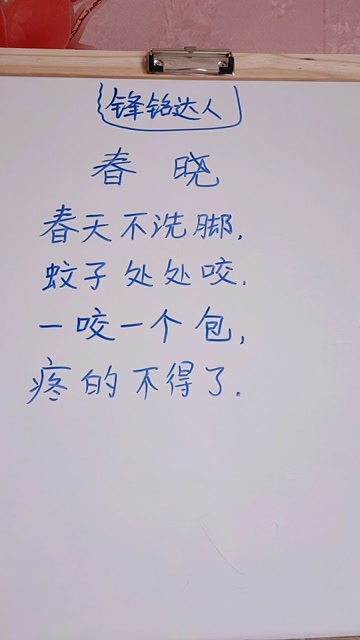 锋铭达人
春晓
春天不洗脚,
蚊子处处咬.
一咬一个包,
疼的不得了.